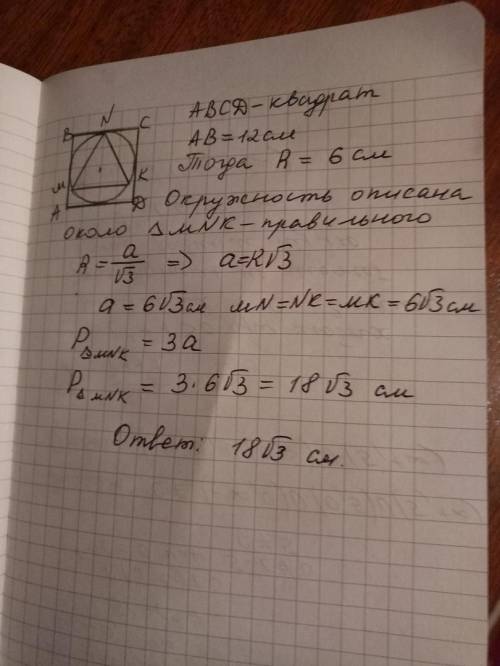 ABCD – квадрат
N
B C
AB = 12 см
Тогда R = 6 см
M K
A D
Окружность описана
около △MNK – правильного
R = a/√3 => a = R√3
a = 6√3 см MN = NK = MK = 6√3 см
P△MNK = 3a
P△MNK = 3 · 6√3 = 18√3 см
Ответ: 18√3 см.